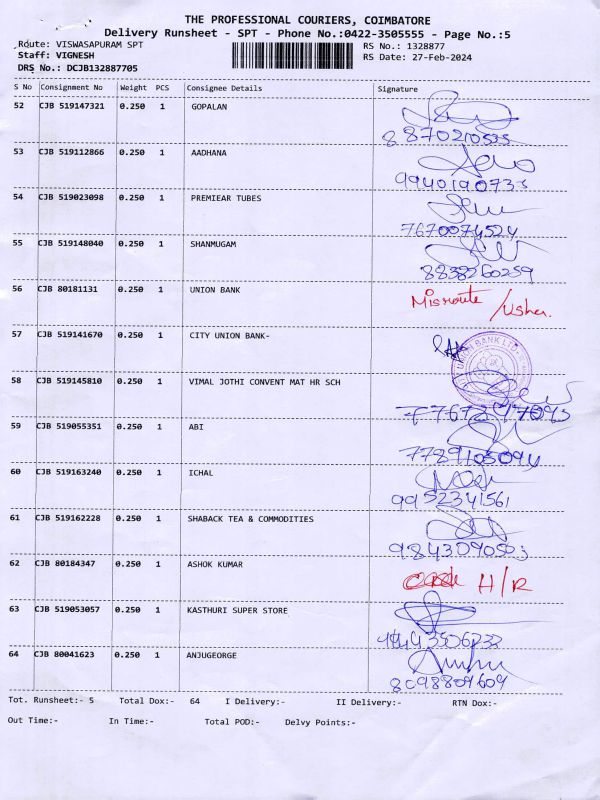 THE PROFESSIONAL COURIERS, COIMBATORE
Delivery Runsheet - SPT - Phone No.:0422-3505555 - Page No.:5
Route: VISWASAPURAM SPT RS No.: 1328877
Staff: VIGNESH RS Date: 27-Feb-2024
DRS No.: DCJB132887705
S No Consignment No Weight PCS Consignee Details Signature
52 CJB 519147321 0.250 1 GOPALAN
8870210535
53 CJB 519112866 0.250 1 AADHANA
9940190733
54 CJB 519023098 0.250 1 PREMIEAR TUBES
7670074524
55 CJB 519148040 0.250 1 SHANMUGAM
8838260259
56 CJB 80181131 0.250 1 UNION BANK Misroute /Usha.
57 CJB 519141670 0.250 1 CITY UNION BANK-
UNION BANK LTD
58 CJB 519145810 0.250 1 VIMAL JOTHI CONVENT MAT HR SCH
59 CJB 519055351 0.250 1 ABI
7789105094
60 CJB 519163240 0.250 1 ICHAL
9952341561
61 CJB 519162228 0.250 1 SHABACK TEA & COMMODITIES
9843090503
62 CJB 80184347 0.250 1 ASHOK KUMAR H/R
63 CJB 519053057 0.250 1 KASTHURI SUPER STORE
64 CJB 80041623 0.250 1 ANJUGEORGE
8098809609
Tot. Runsheet:- 5 Total Dox:- 64 I Delivery:- II Delivery:- RTN Dox:-
Out Time:- In Time:- Total POD:- Delvy Points:-